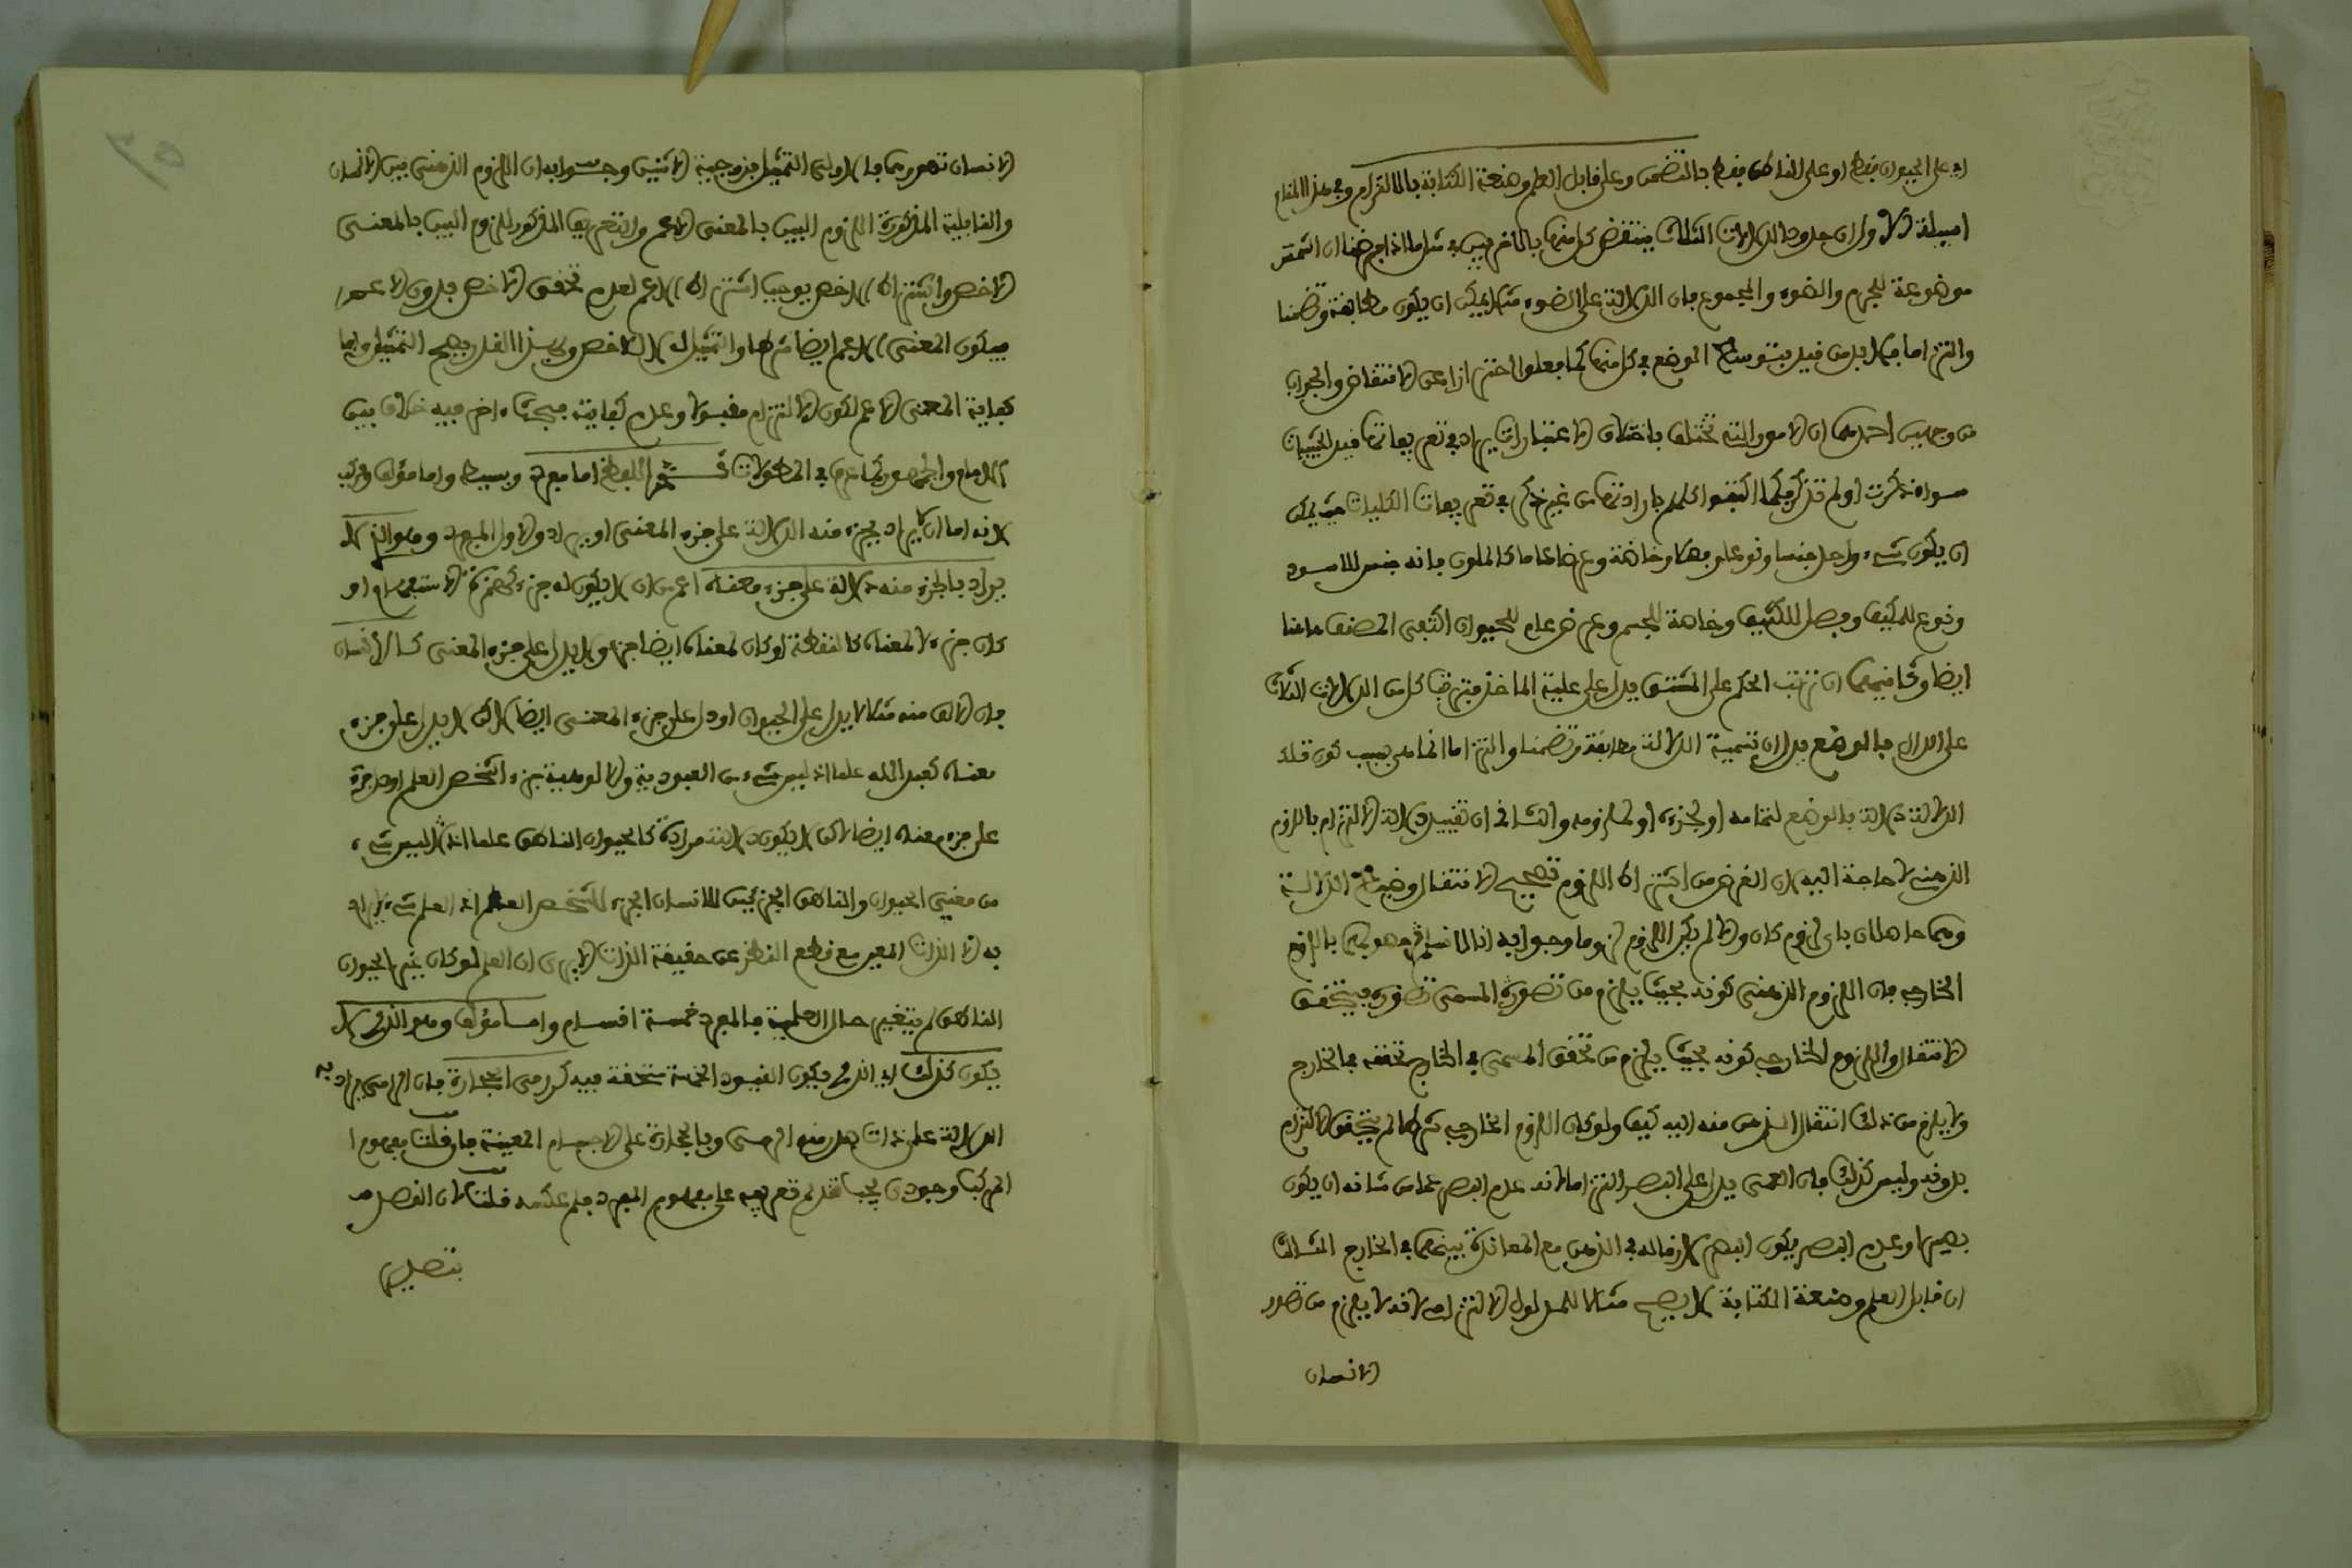 اي على الحيوان فقط او على الناطق فقط بالتضمن وعلى قابل العلم وصنعة الكتابة بالالتزام وفي هذا المقام
اسئلة الاول ان حدود الدلالات الثلاث ينتقض كل منها بالاخريين في مثل ما اذا فرضنا ان الشمس
موضوعة للجرم والضوء والمجموع فان الدلالة على الضوء مثلا يمكن ان يكون مطابقة وتضمنا
والتزاما فلا بد من قيد بتوسط الوضع في كل منها كما فعلوا احترازا عن الانتقاض والجواب
من وجهين احدهما ان الامور التي تختلف باختلاف الاعتبارات يراد في تعريفاتها قيد الحيثيات
سواء ذكرت او لم تذكر كما اكتفوا كلهم بارادتها من غير ذكر في تعريفات الكليات حيث يمكن
ان يكون شيء واحد جنسا ونوعا وفصلا وخاصة وعرضا عاما كالملون فانه جنس للاسود
ونوع للمكيف وفصل للكثيف وخاصة للجسم وعرض عام للحيوان اكتفى المصنف هاهنا
ايضا وثانيهما ان ترتب الحكم على المشتق يدل على علية الماخذ فترتب كل من الدلالات الثلاث
على الدال بالوضع يدل ان تسمية الدلالة مطابقة وتضمنا والتزاما انما هي بسبب كون تلك
الدلالة دلالة بالوضع لتمامه او لجزئه او لملزومه والثاني ان تقييد دلالة الالتزام باللزوم
الذهني لا حاجة اليه لان الغرض من اشتراط اللزوم تصحيح الانتقال وضبط الدلالة
وهما حاصلان باي لزوم كان والا لم يكن اللزوم لزوما وجوابه انا لا نسلم حصولهما باللزوم
الخارجي فان اللزوم الذهني كونه بحيث يلزم من تصور المسمى تصوره فيتحقق
الانتقال واللزوم الخارجي كونه بحيث يلزم من تحقق المسمى في الخارج تحققه في الخارج
ولا يلزم من ذلك انتقال الذهن منه اليه كيف ولو كان اللزوم الخارجي شرطا لم يتحقق الالتزام
بدونه وليس كذلك فان العمى يدل على البصر التزاما لانه عدم البصر عما من شانه ان يكون
بصيرا وعدم البصر يكون البصر لازما له في الذهن مع المعاندة بينهما في الخارج الثالث
ان قابل العلم وصنعة الكتابة لا يصح مثالا للمدلول الالتزامي لانه لا يلزم من تصور
الانسان
الانسان تصورهما فالاولى التمثيل بزوجية الاثنين وجوابه ان اللزوم الذهني بين الانسان
والقابلية المذكورة اللزوم البين بالمعنى الاعم والتعريف المذكور للزوم البين بالمعنى
الاخص واشتراط الاخص يوجب اشتراط الاعم لعدم تحقق الاخص بدون الاعم
فيكون المعنى الاعم ايضا شرطا والتمثيل له لا للاخص وبهذا القدر يصح التمثيل واما
كفاية المعنى الاعم لكون الالتزام مقبولا وعدم كفايته فبحث اخر فيه خلاف بين
الامام والجمهور كما عرف في المطولات ثم اللفظ اما مفرد وبسيط واما مؤلف ومركب
لانه اما ان لا يراد بجزء منه الدلالة على جزء المعنى او يراد والاول المفرد وهو الذي لا
يراد بالجزء منه دلالة على جزء معناه اعم من ان لا يكون له جزء كهمزة الاستفهام او
كان جزء لا لمعناه كالنقطة او كان لمعناه ايضا جزء ولا يدل على جزء المعنى كالانسان
فان الالف منه مثلا لا يدل على الحيوان او دل على جزء المعنى ايضا لكن لا يدل على جزء
معناه كعبد الله علما اذ ليس شيء من العبودية والالوهية جزء الشخص العلم او دل جزؤه
على جزء معناه ايضا لكن لا يكون دلالته مرادة كالحيوان الناطق علما اذ ليس شيء
من معنيي الحيوان والناطق الجزئين للانسان الجزء للشخص العلم اذ العلم شيء لا يراد
به الا الذات المعين مع قطع النظر عن حقيقة الذات الا يرى ان العلم لو كان غير الحيوان
الناطق لم يتغير حال العلمية فالمفرد خمسة اقسام واما مؤلف وهو الذي لا
يكون كذلك اي الذي يكون القيود الخمسة متحققة فيه كرامي الحجارة فان الرامي يراد به
الدلالة على ذات صدر منه الرمي وبالحجارة على الاجسام المعينة فان قلت مفهوم
المركب وجودي يجب تقديم تعريفه على مفهوم المفرد فلم عكسه قلت لان القصد من
بتصدير